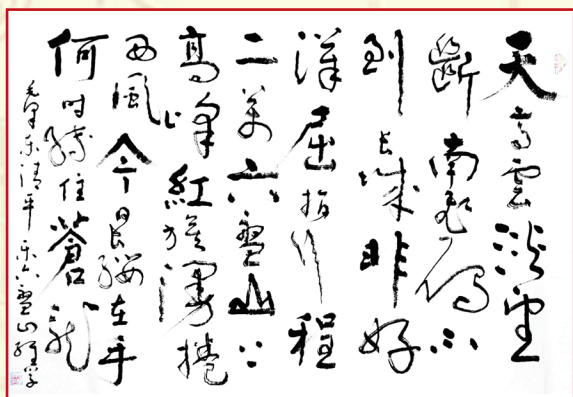 天高雲淡望
斷南飛雁不
到长城非好
漢屈指行程
二萬六盤山上
高峰紅旗漫捲
西風今日長纓在手
何时縛住蒼龍
毛澤东清平乐六盤山